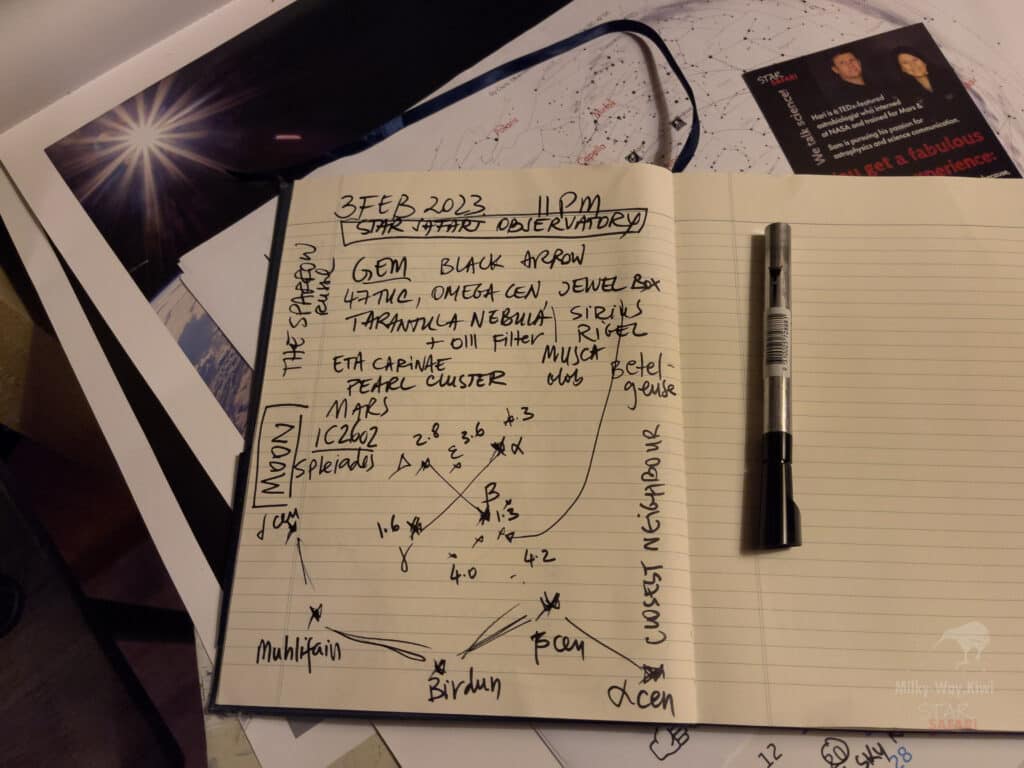 3 FEB 2023 11 PM
STAR SAFARI OBSERVATORY
THE SPARROW
GEM BLACK ARROW
47TUC, OMEGA CEN JEWEL BOX
TARANTULA NEBULA SIRIUS
+ OIII Filter RIGEL
ETA CARINAE MUSCA Betel-
PEARL CLUSTER geuse
MARS
MOON
IC2602
Spleiades
2.8 3.6
ε
α
β
1.6 1.3
γ
4.0 4.2
α cen
Muhlifain
Birdun
β cen
α cen
CLOSEST NEIGHBOUR
STAR
SAFARI
We talk science!
Hari is a TEDx-featured
at NASA and trained for Mars &
Sam is pursuing his passion for
astrophysics and science communication.
get a fabulous
experience:
Capella
12
SKY
28
Milky-Way.Kiwi
STAR
SAFARI